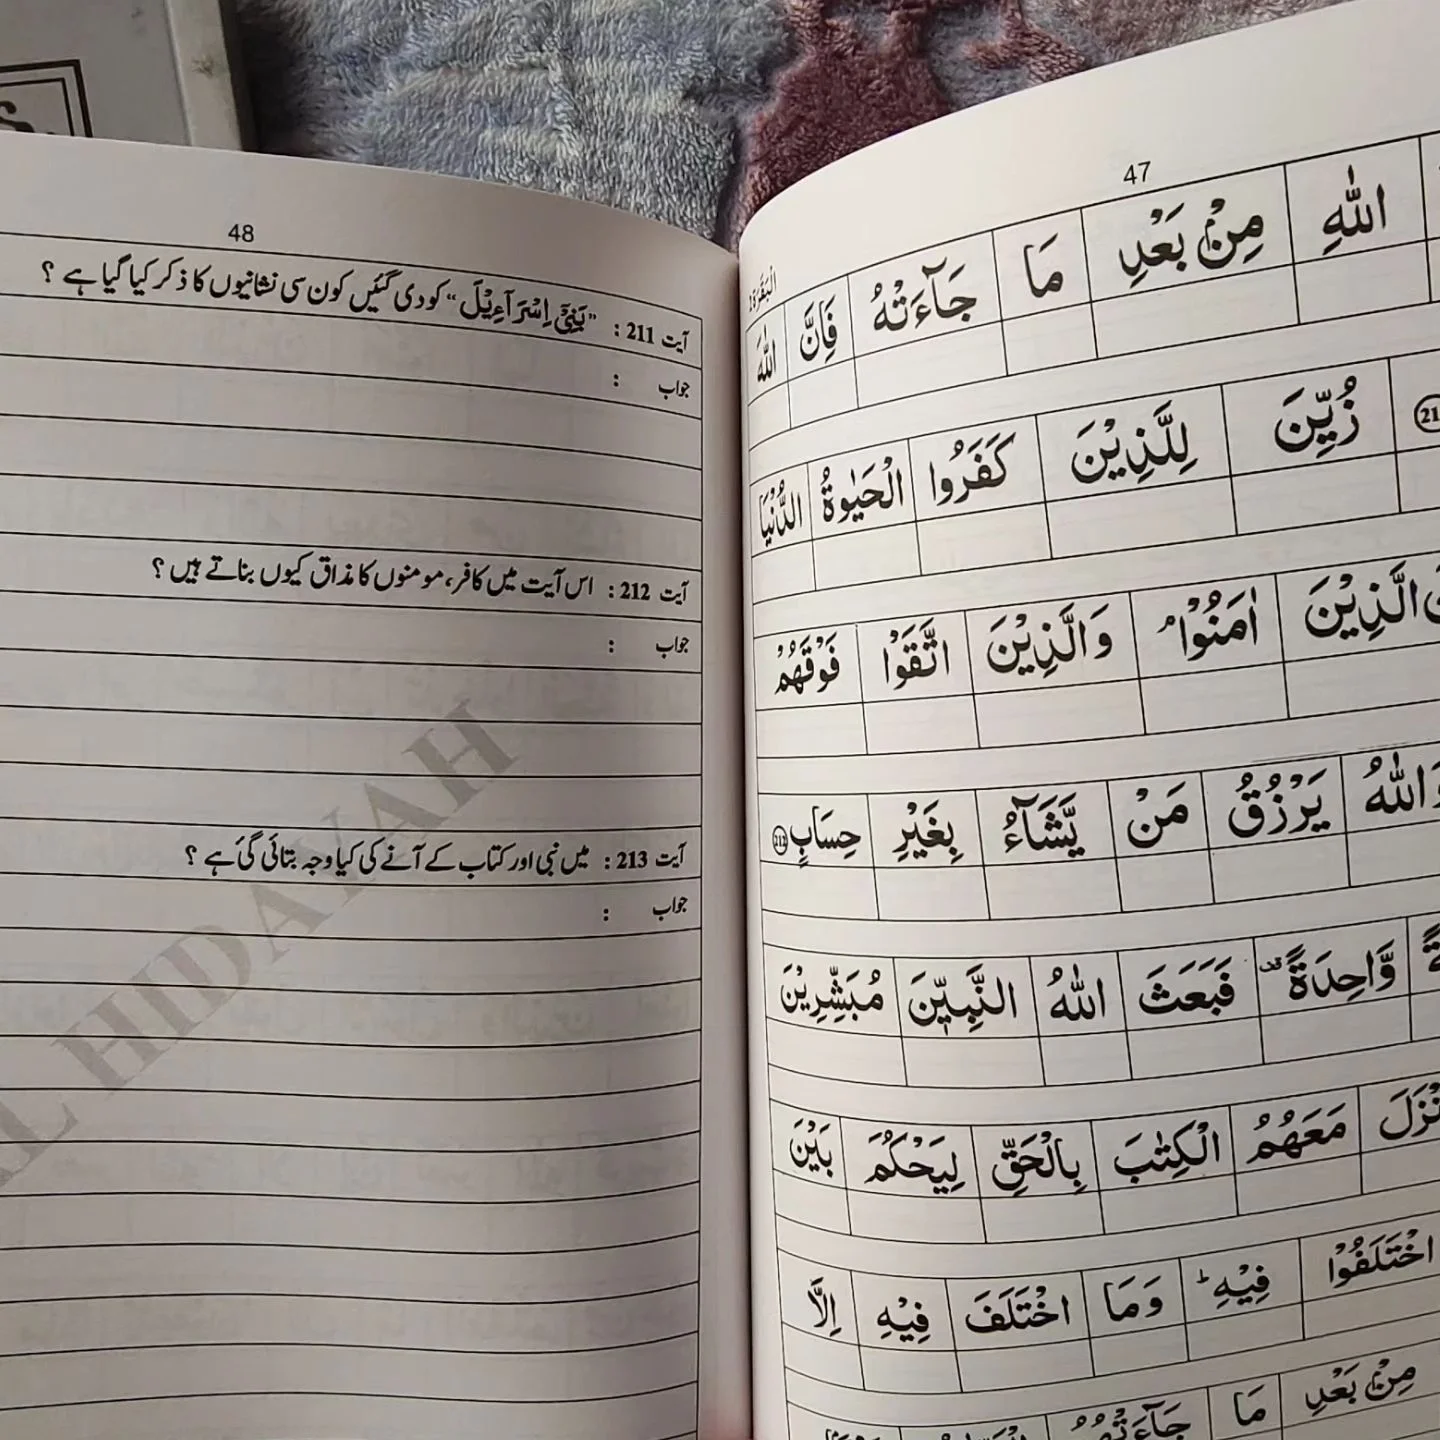 47
اللّٰهِ مِنْۢ بَعْدِ مَا جَآءَتْهُ فَاِنَّ اللّٰهَ
زُيِّنَ لِلَّذِيْنَ كَفَرُوا الْحَيٰوةُ الدُّنْيَا
الَّذِيْنَ اٰمَنُوْا ۘ وَالَّذِيْنَ اتَّقَوْا فَوْقَهُمْ
وَاللّٰهُ يَرْزُقُ مَنْ يَّشَآءُ بِغَيْرِ حِسَابٍ 212
وَّاحِدَةً ۫ فَبَعَثَ اللّٰهُ النَّبِيّٖنَ مُبَشِّرِيْنَ
مَعَهُمُ الْكِتٰبَ بِالْحَقِّ لِيَحْكُمَ بَيْنَ
اخْتَلَفُوْا فِيْهِ ؕ وَمَا اخْتَلَفَ فِيْهِ اِلَّا
مِنْۢ بَعْدِ مَا جَآءَتْهُمُ
48
آیت 211 : "بَنِیْۤ اِسْرَآءِیْلَ" کو دی گئیں کون سی نشانیوں کا ذکر کیا گیا ہے ؟
جواب :
آیت 212 : اس آیت میں کافر، مومنوں کا مذاق کیوں بناتے ہیں ؟
جواب :
آیت 213 : میں نبی اور کتاب کے آنے کی کیا وجہ بتائی گئ ہے ؟
جواب :
AL HIDAYAH